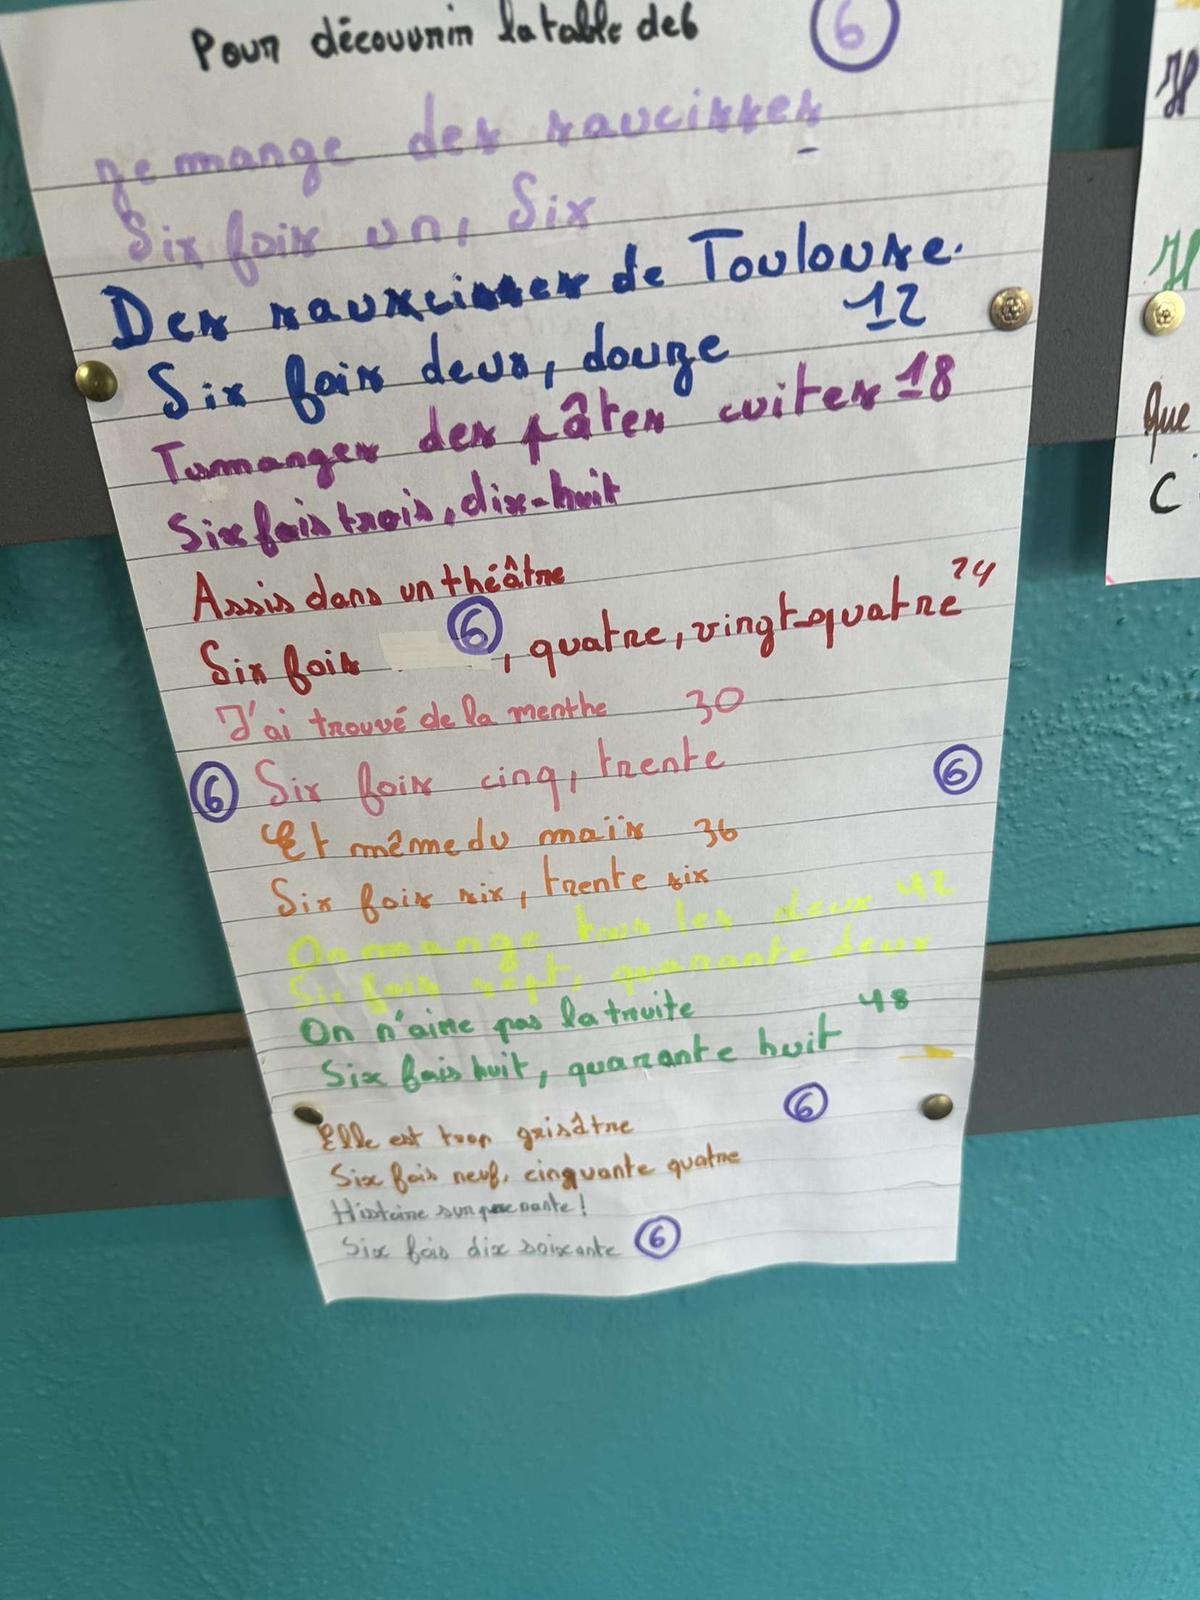 Pour découvrir la table de 6 6
Je mange des saucisses
Six fois un, Six
Des sauxcisses de Toulouse.
12
Six fois deux, douze
Tumanges des pâtes cuites 18
Six fois trois, dix-huit
Assis dans un théâtre
24
Six fois 6, quatre, vingt-quatre
J'ai trouvé de la menthe 30
6 Six fois cinq, trente 6
Et même du maïs 36
Six fois six, trente six
On mange tous les deux 42
Six fois sept, quarante deux
On n'aime pas la truite 48
Six fois huit, quarante huit
6
Elle est trop grisâtre
Six fois neuf, cinquante quatre
Histoire surprenante!
Six fois dix soixante 6
H
H
Que
C